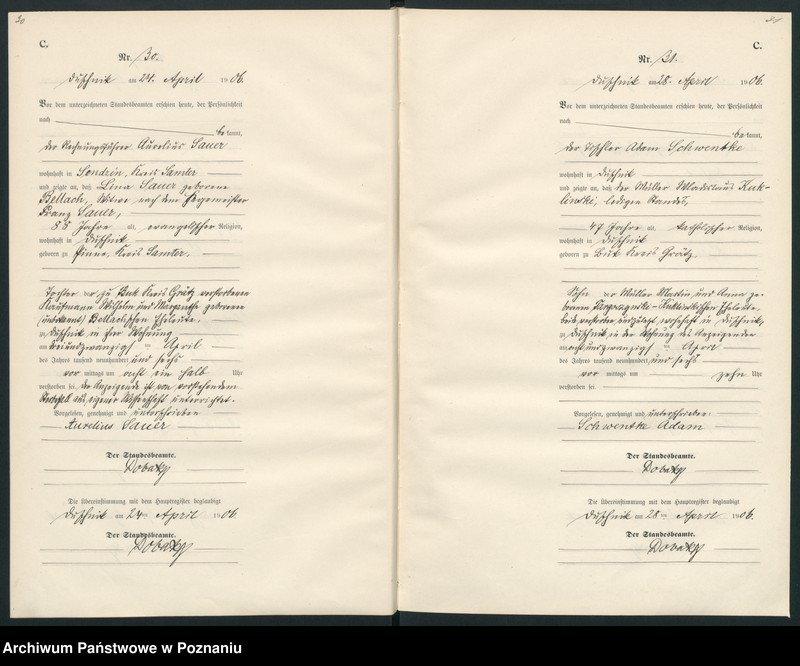 20
C.
Nr. 30.
Duschnik am 24. April 1906.
Vor dem unterzeichneten Standesbeamten erschien heute, der Persönlichkeit
nach
bekannt,
der Rechnungsführer Aurelius Sauer
wohnhaft in Kreis Samter
und zeigte an, daß Lina Sauer geborene
Bellach, Witwe nach dem Hegemeister
Franz Sauer,
55 Jahre alt, evangelischer Religion,
wohnhaft in Duschnik
geboren zu Pinne, Kreis Samter,
Tochter der, zu Buk Kreis Grätz verstorbenen
Kaufmann Wilhelm und geborene
Bellachschen Eheleute,
zu Duschnik in ihrer Wohnung
am dreiundzwanzigsten April
des Jahres tausend neunhundert und sechs
vormittags um acht ein halb Uhr
verstorben sei, der Anzeigende ist von vorstehendem
Sterbefall aus eigener Wissenschaft unterrichtet.
Vorgelesen, genehmigt und unterschrieben
Aurelius Sauer
Der Standesbeamte.
Die Übereinstimmung mit dem Hauptregister beglaubigt
Duschnik am 24. April 1906.
Der Standesbeamte.
21
C.
Nr. 31.
Duschnik am 28. April 1906.
Vor dem unterzeichneten Standesbeamten erschien heute, der Persönlichkeit
nach
bekannt,
der Tischler Adam Schwentke
wohnhaft in Duschnik
und zeigte an, daß der Müller Wladislaus Kuk-
linski, ledigen Standes,
47 Jahre alt, katholischer Religion,
wohnhaft in Duschnik
geboren zu Buk Kreis Grätz,
Sohn der Müller Martin und Anna ge-
borenen Kuklinskischen Eheleute,
beide verstorben wohnhaft in Duschnik,
zu Duschnik in der Wohnung des Anzeigenden
am achtundzwanzigsten April
des Jahres tausend neunhundert und sechs
vormittags um zehn Uhr
verstorben sei
Vorgelesen, genehmigt und unterschrieben
Schwentke Adam
Der Standesbeamte.
Die Übereinstimmung mit dem Hauptregister beglaubigt
Duschnik am 28. April 1906.
Der Standesbeamte.
Archiwum Państwowe w Poznaniu